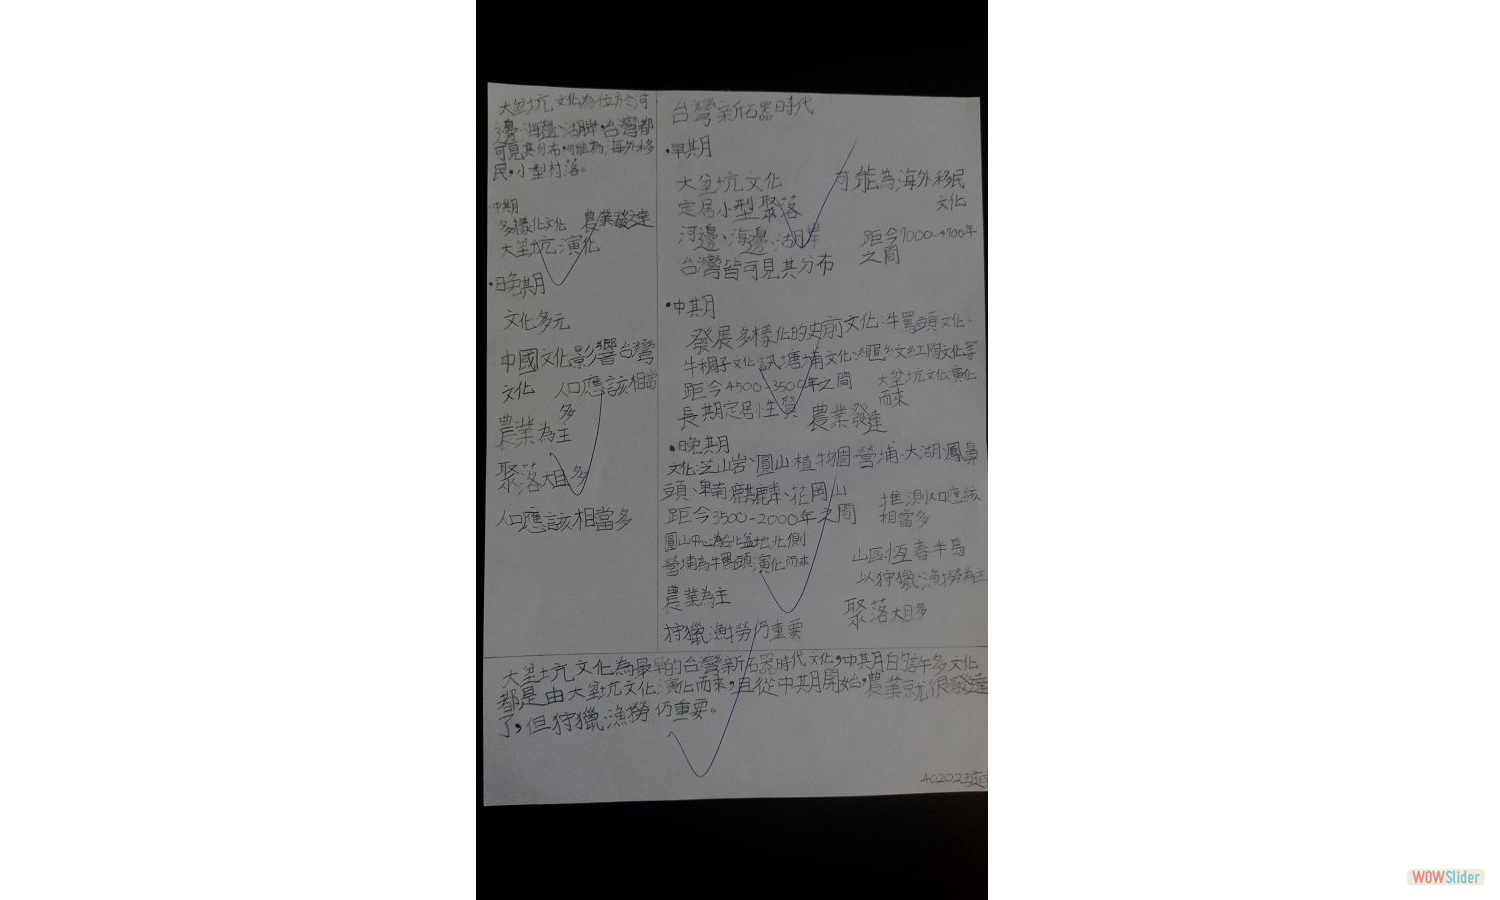 大坌坑文化為位於河
邊、海邊、湖岸,台灣都
可見其分布,可能為海外移
民,小型村落。
中期
多樣化文化 農業發達
大坌坑演化
•晚期
文化多元
中國文化影響台灣
文化 人口應該相當
多
農業為主
聚落大且多
人口應該相當多
台灣新石器時代
•早期
大坌坑文化 可能為海外移民
文化
定居小型聚落
河邊、海邊、湖岸 距今7000-4700年
之間
台灣皆可見其分布
•中期
發展多樣化的史前文化,牛罵頭文化、
牛稠子文化訊塘埔文化、繩紋紅陶文化等
距今4500-3500年之間 大坌坑文化演化
而來
長期定居性質 農業發達
•晚期
文化:芝山岩、圓山、植物園、營埔、大湖、鳳鼻
頭、卑南、麒麟、花岡山
距今3500-2000年之間 推測人口應該
相當多
圓山中心為台北盆地北側
營埔為牛罵頭演化而來
山區恆春半島
以狩獵漁撈為主
農業為主
聚落大且多
狩獵漁撈仍重要
大坌坑文化為最早的台灣新石器時代文化,中期的許多文化
都是由大坌坑文化演化而來,且從中期開始,農業就很發達
了,但狩獵漁撈仍重要。
40202
WOWSlider